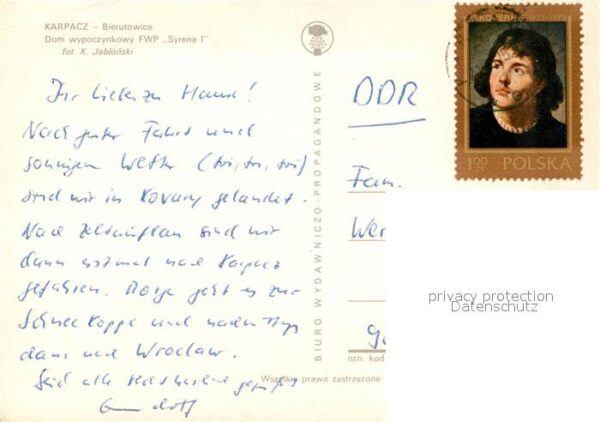 KARPACZ – Bierutowice
Dom wypoczynkowy FWP „Syrena I"
fot. K. Jabłoński
Ihr Lieben zu Hause!
Nach guter Fahrt und
sonnigem Wetter (toi, toi, toi)
sind wir in Kovary gelandet.
Nach Zeltaufbau sind wir
dann nochmal nach Karpacz
gefahren. Morgen geht es zur
Schneekoppe und nachmittags
dann nach Wroclaw.
Seid alle herzlich gegrüßt
BIURO WYDAWNICZO-PROPAGANDOWE
M. KOPERNIK 1473-1973
1.00 ZŁ POLSKA
DDR
Fam.
Wer
ozn. kod
Wszelkie prawa zastrzeżone
privacy protection
Datenschutz